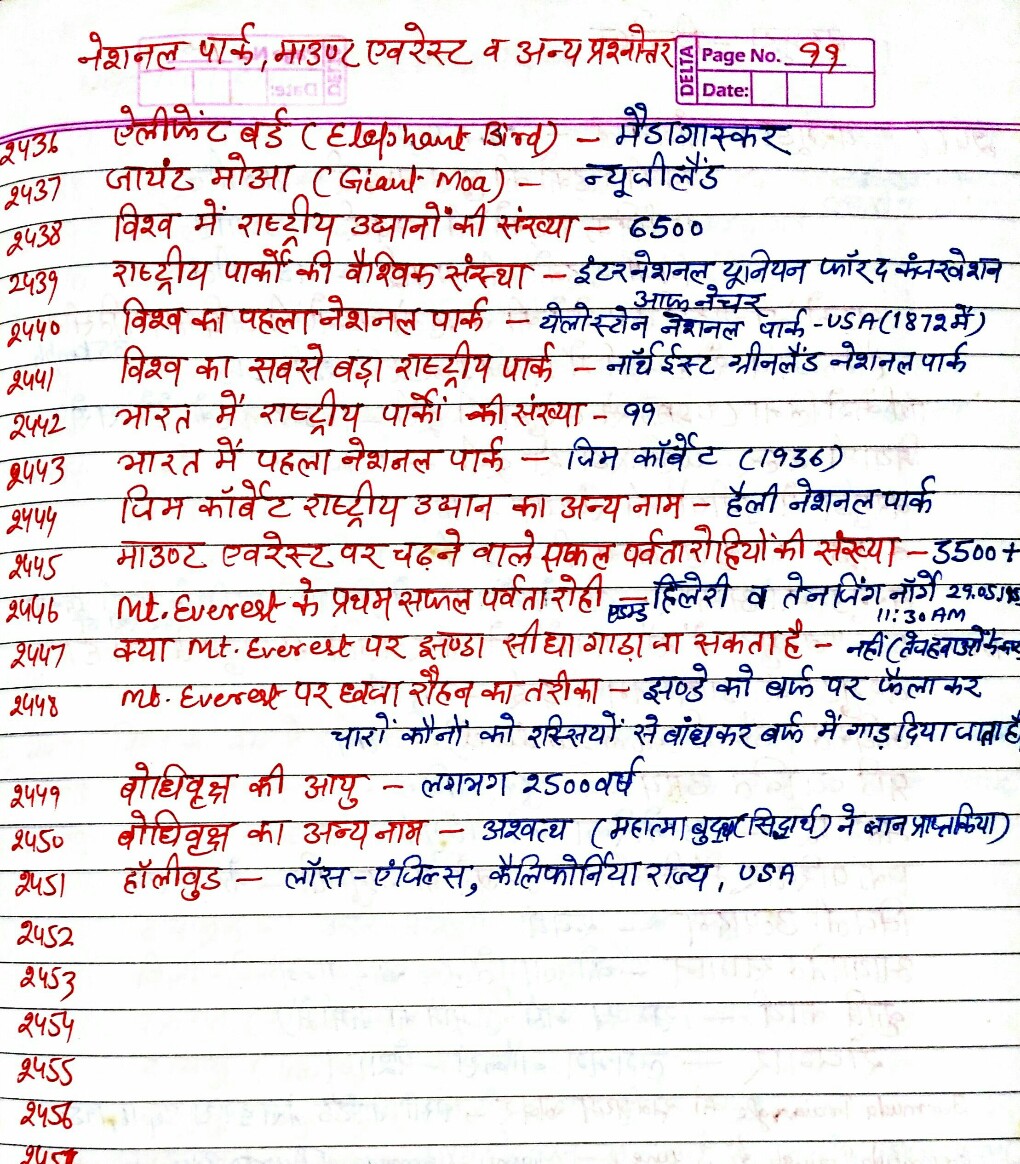 नेशनल पार्क, माउण्ट एवरेस्ट व अन्य प्रश्नोत्तर
DELTA Page No. 99
Date:
2436 ऐलीफेंट बर्ड (Elephant Bird) – मैडागास्कर
2437 जायंट मोआ (Giant Moa) – न्यूजीलैंड
2438 विश्व में राष्ट्रीय उद्यानों की संख्या – 6500
2439 राष्ट्रीय पार्कों की वैश्विक संस्था – इंटरनेशनल यूनियन फॉर द कंजरवेशन
आफ नेचर
2440 विश्व का पहला नेशनल पार्क – येलोस्टोन नेशनल पार्क - USA (1872 में)
2441 विश्व का सबसे बड़ा राष्ट्रीय पार्क – नॉर्थ ईस्ट ग्रीनलैंड नेशनल पार्क
2442 भारत में राष्ट्रीय पार्कों की संख्या – 99
2443 भारत में पहला नेशनल पार्क – जिम कॉर्बेट (1936)
2444 जिम कॉर्बेट राष्ट्रीय उद्यान का अन्य नाम – हैली नेशनल पार्क
2445 माउण्ट एवरेस्ट पर चढ़ने वाले सफल पर्वतारोहियों की संख्या – 3500+
2446 Mt. Everest के प्रथम सफल पर्वतारोही – हिलेरी व तेनजिंग नॉर्गे 29.05.195
11:30 AM
2447 क्या Mt. Everest पर झण्डा सीधा गाड़ा जा सकता है – नहीं (तेज हवाओं के
2448 Mt. Everest पर ध्वजा रोहन का तरीका – झण्डे को बर्फ पर फैलाकर
चारों कौनों को रस्सियों से बांधकर बर्फ में गाड़ दिया जाता है
2449 बोधिवृक्ष की आयु – लगभग 2500 वर्ष
2450 बोधिवृक्ष का अन्य नाम – अश्वत्थ (महात्मा बुद्ध (सिद्धार्थ) ने ज्ञान प्राप्त किया)
2451 हॉलीवुड – लॉस-एंजिल्स, कैलिफोर्निया राज्य, USA
2452
2453
2454
2455
2456